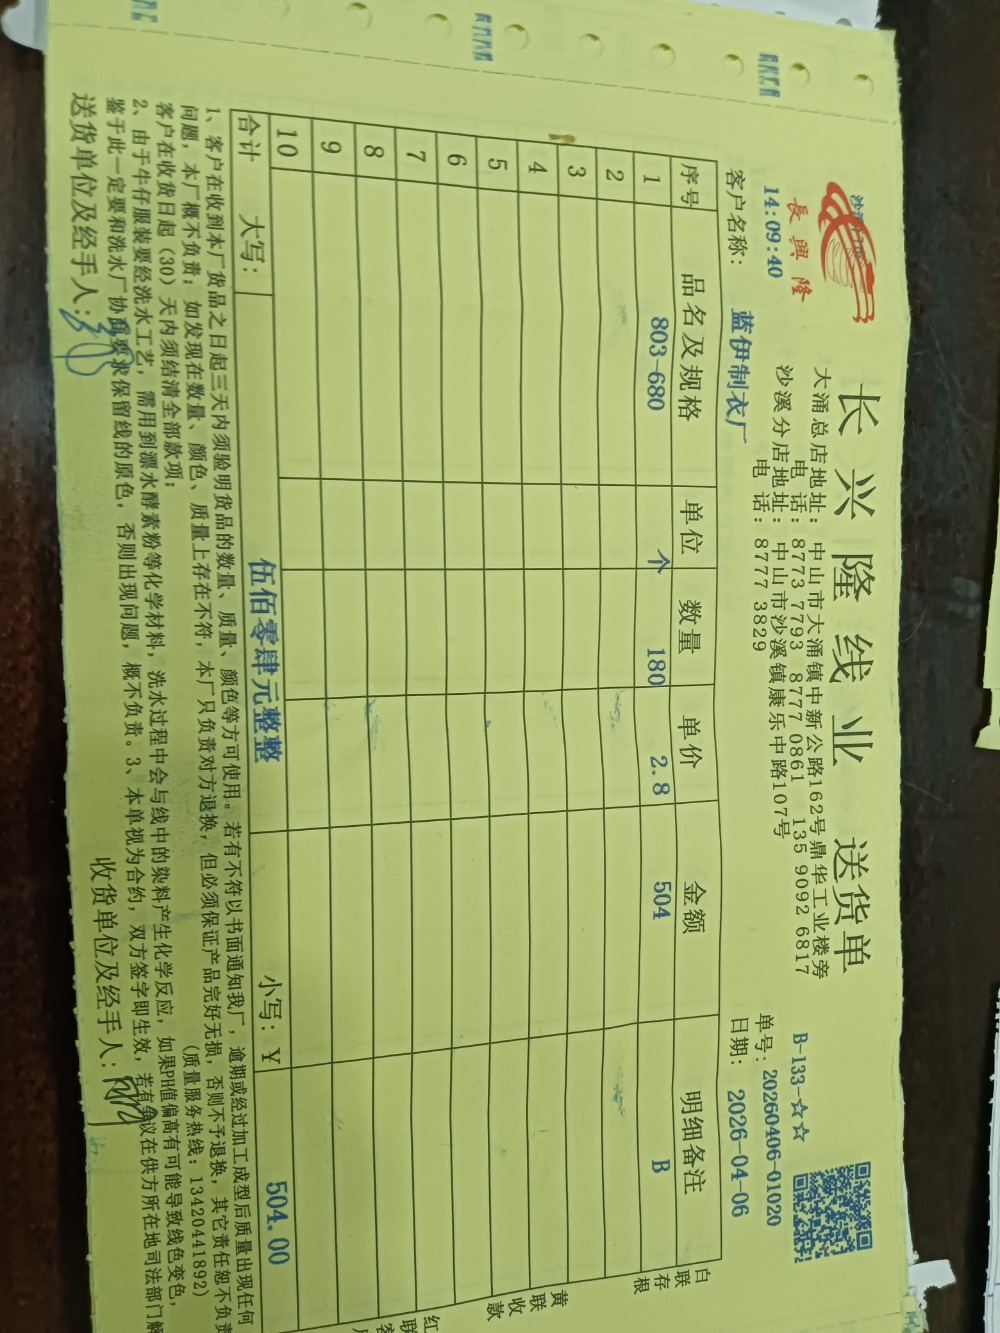 長興隆
14:09:40
长兴隆线业 送货单
大涌总店地址: 中山市大涌镇中新公路162号鼎华工业楼旁
电 话: 8773 7793 8777 0861 135 9092 6817
沙溪分店地址: 中山市沙溪镇康乐中路107号
电 话: 8777 3829
B-133-☆☆
单号: 20260406-01020
客户名称: 蓝伊制衣厂
日期: 2026-04-06
序号 品名及规格 单位 数量 单价 金额 明细备注
1 803-680 个 180 2.8 504 B
2
3
4
5
6
7
8
9
10
合计 大写: 伍佰零肆元整整 小写: ¥ 504.00
白联存根
黄联收款
红联客
1、客户在收到本厂货品之日起三天内须验明货品的数量、质量、颜色等方可使用。若有不符以书面通知我厂, 逾期或经过加工成型后质量出现任何
问题, 本厂概不负责; 如发现在数量、颜色、质量上存在不符, 本厂只负责对方退换, 但必须保证产品完好无损, 否则不予退换, 其它责任恕不负责
客户在收货日起 (30) 天内须结清全部款项; (质量服务热线: 13420441892)
2、由于牛仔服装要经洗水工艺, 需用到漂水酵素粉等化学材料, 洗水过程中会与线中的染料产生化学反应, 如果PH值偏高有可能导致线色变色,
鉴于此一定要和洗水厂协商要求保留线的原色, 否则出现问题, 概不负责。3、本单视为合约, 双方签字即生效, 若有争议在供方所在地司法部门解
送货单位及经手人: 收货单位及经手人: